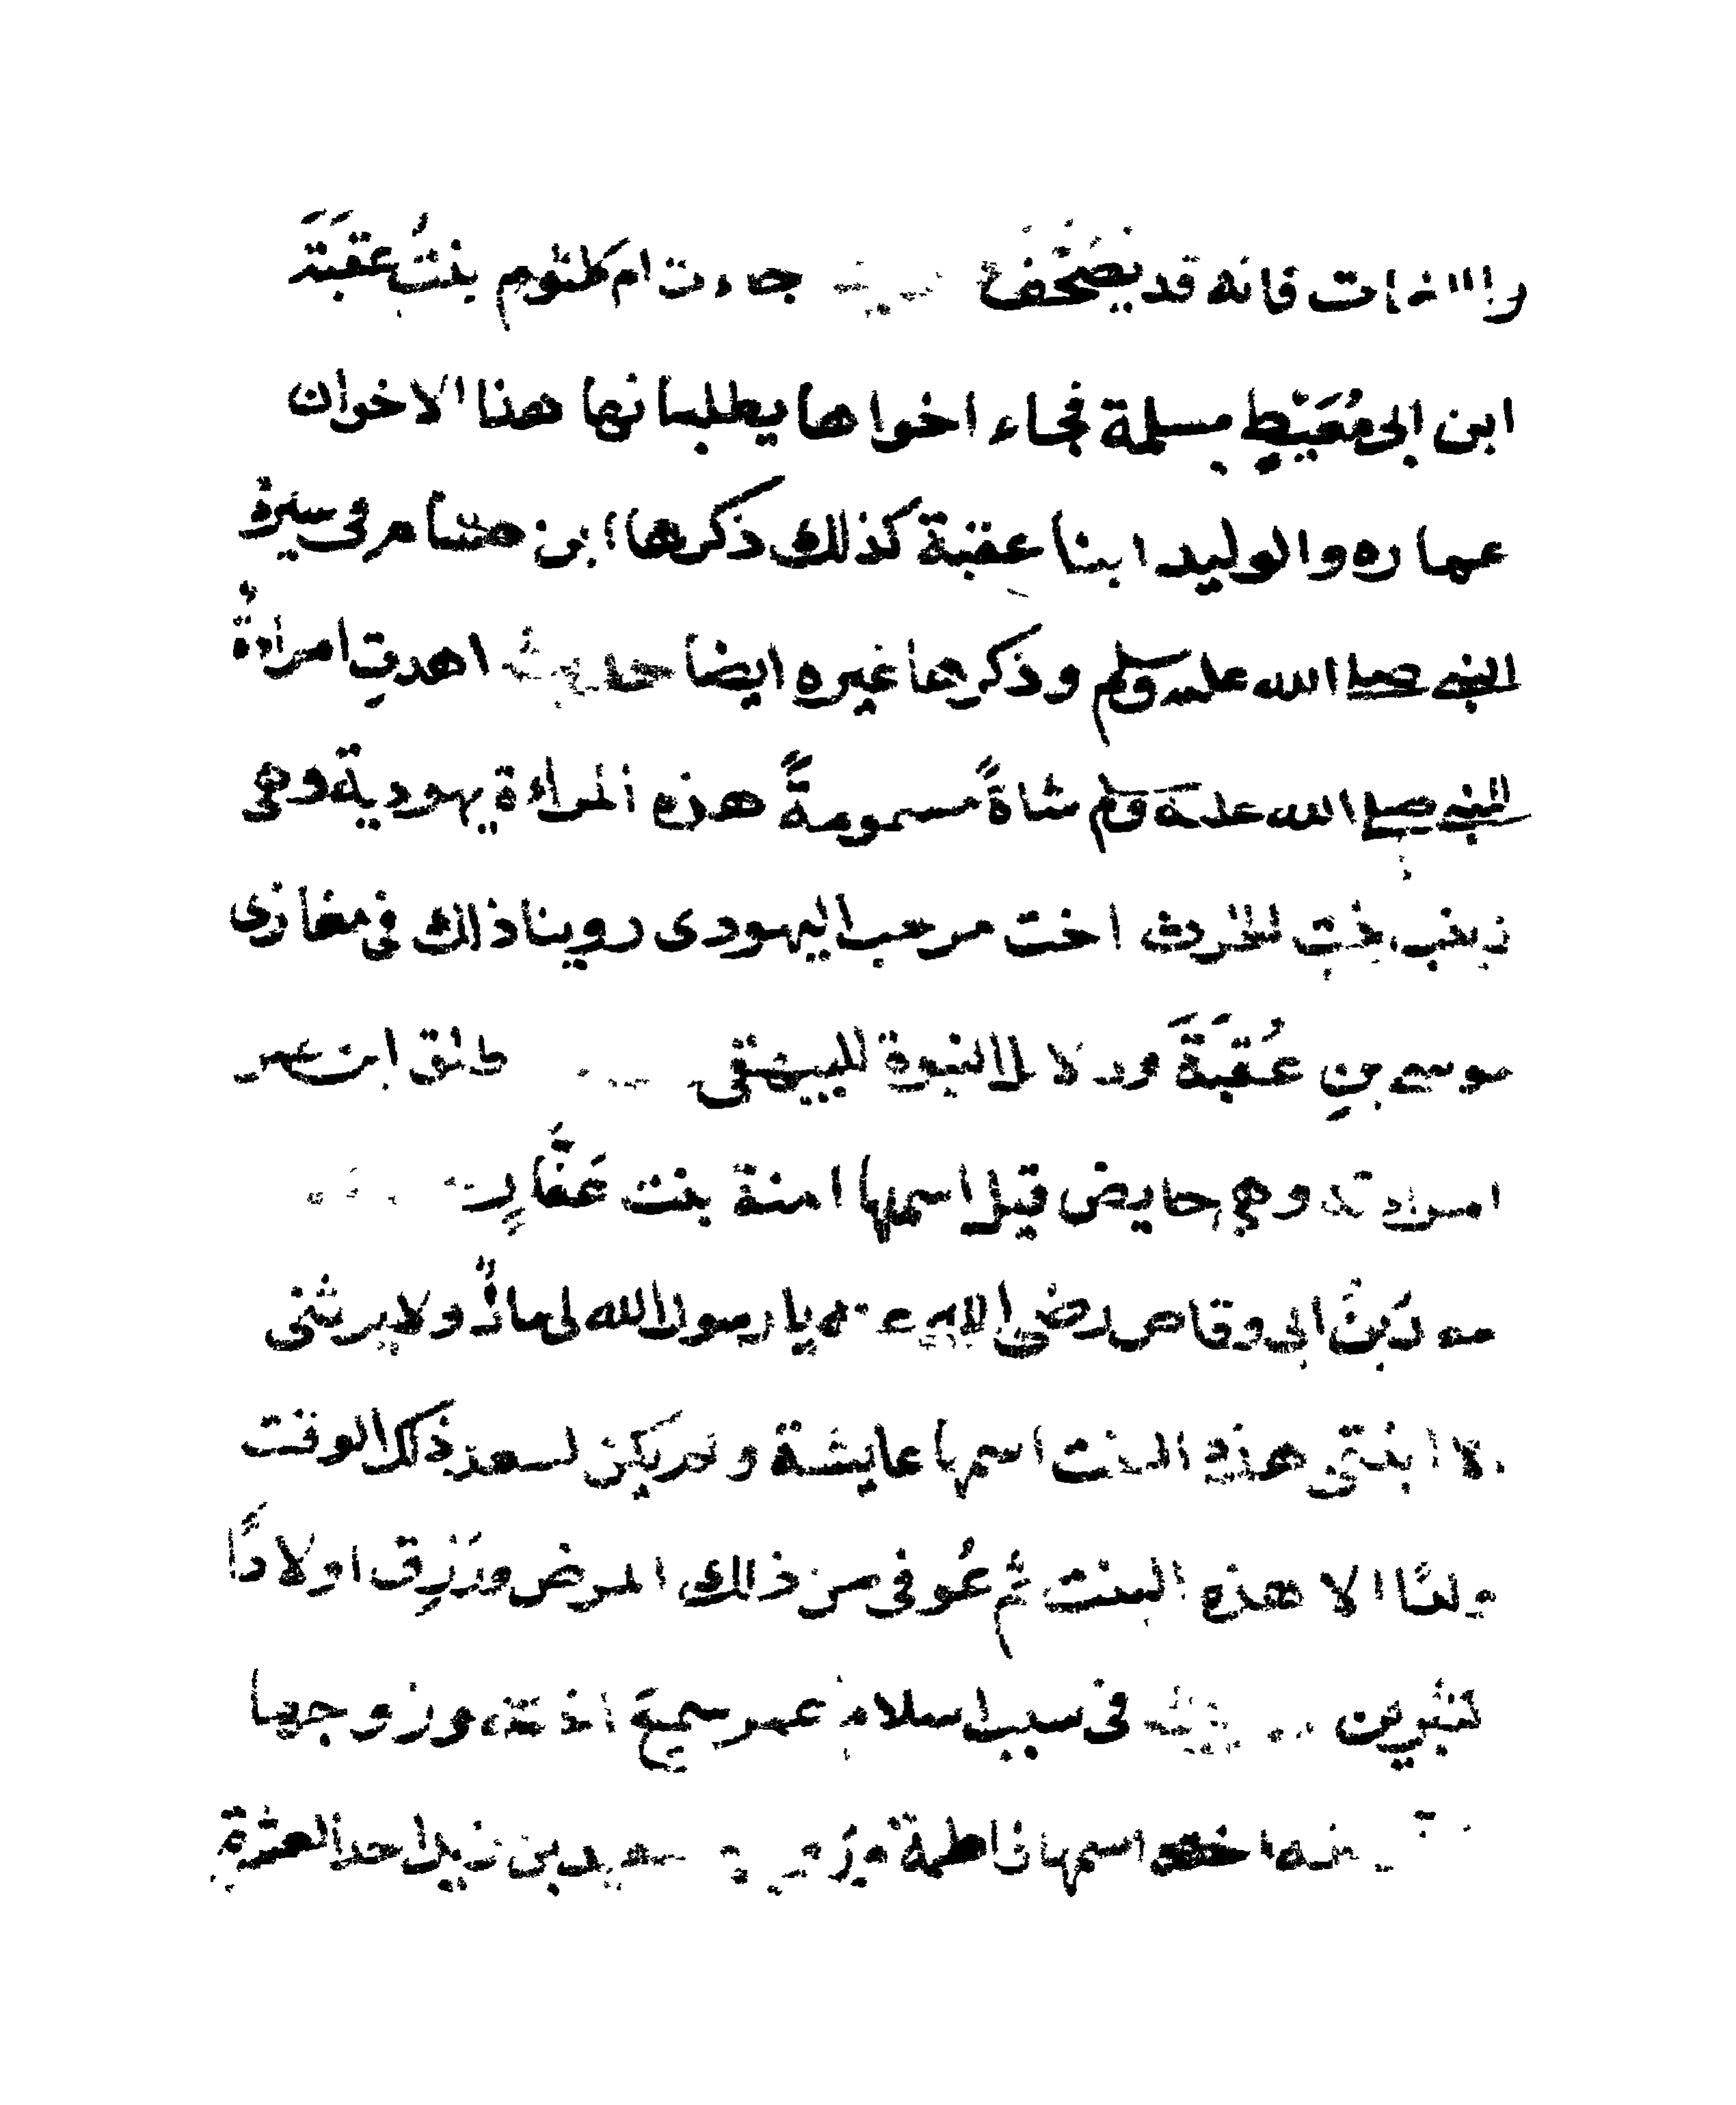 فانه قد يصحف جاءت ام كلثوم بنتُ عقبَةَ
ابن ابى مُعَيْطٍ مسلمة فجاء اخواها يطلبانها هذا الاخوان
عماره والوليد ابنا عقبة كذلك ذكرها ابن هشام فى سيرة
النبى صلى الله عليه وسلم وذكرها غيره ايضا حديث اهدت امراةٌ
للنبى صلى الله عليه وسلم شاةً مسمومةً هذه المراءة يهودية وهى
زينب بنت الحرث اخت مرحب اليهودى روينا ذلك فى مغازى
موسى بنِ عُقبَةَ ودلايل النبوة للبيهقى طلق ابن عمر
امراءته وهى حايض قيل اسمها امنة بنت غَفَّارٍ
بن ابى وقاص رضى الله عنه يا رسول الله لى مالٌ ولا يرثنى
الا ابنتى هذه البنت اسمها عايشة ولم يكن لسعد ذلك الوقت
ولدًا الا هذه البنت ثم عُوفى من ذلك المرض ورُزِق اولادًا
كثيرين حديث فى سبب اسلام عمر سمع اخته وزوجها
اخته اسمها فاطمة وزوجها سعيد بن زيد احد العشرة